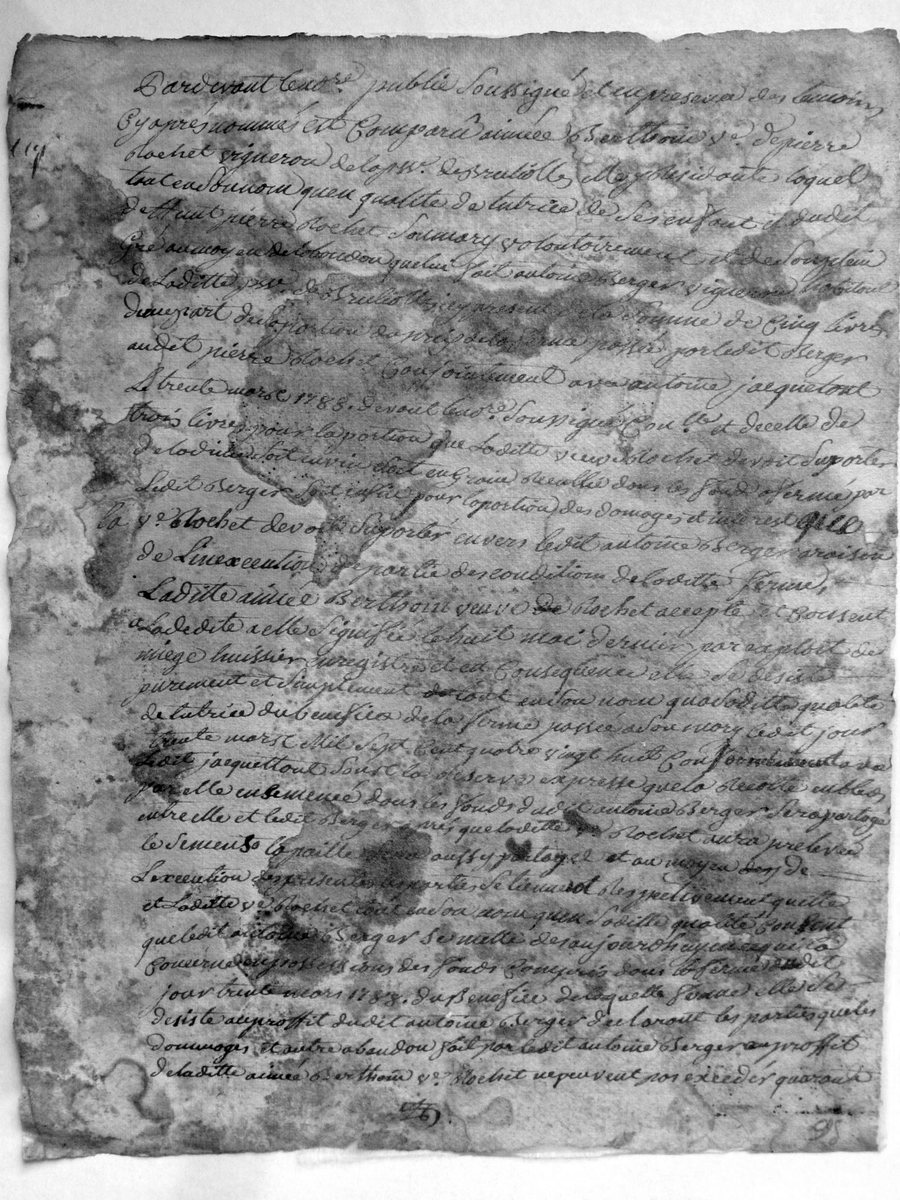 Pardevant le no.re public soussigné et en presence des temoins
cy après nommés est comparû aimée Berthom v.e de pierre
Rochet vigneron de la p.sse de Brullolles elle y residante laquel
tant en son nom quen qualité de tutrice de ses enfant et dudit
deffunt pierre Rochet son mary volontairement et de son plein
Gré au moyen de labandon que lui fait antoine Berger vigneron habitant
de laditte p.sse de Brullolles cy present de la somme de Cinq livres
dune part de la portion du prix de la ferme passée par ledit Berger
audit pierre Rochet Conjointement avec antoine jacquetont
Le trente mars 1788. devant le no.re soussigné Con.lle et decelle de
trois livres pour la portion que laditte veuve Rochet devoit suporter
de la dime soit en vin soit en Grain Recullie dans les fond afermé par
Ledit Berger soit enfin pour la portion des domages et interest que
la v.e Rochet devoit suporter envers ledit antoine Berger a raison
de Linexecution de partie des conditions de laditte ferme,
Laditte aimée Berthom veuve de Rochet accepte et consent
a la dedite a elle signifiée le huit mai dernier par exploit de
miège huissier enregistré et en Consequence elle se desiste
purement et simplement tant en son nom qua saditte qualité
de tutrice du benefice de la ferme passée a son mary ledit jour
trente mars Mil sept cent quatre vingt huit Conjointement avec
ledit jacquettont sous la reserve expresse que la Recolte en bled
par elle ensemencé dans les fonds dudit antoine Berger sera partagé
entre elle et ledit Berger après que laditte v.e Rochet aura prelevée
le semens la paille sera aussy partagé et au moyen de
Lexecution des presentes les parties se tiennent Respectivement quitte
et Laditte v.e Rochet tant en son nom quen saditte qualité consent
que ledit antoine Berger se mette des aujourdhuy en ce qui la
Concerne en possessions des fonds Compris dans la ferme dudit
jour trente mars 1788. du Benefice de laquelle ferme elle se
desiste au proffit dudit antoine Berger declarant les parties que les
dommages et autre abandon fait par ledit antoine Berger au proffit
de laditte aimée Berthom v.e Rochet ne peuvent pas exceder quarante
95